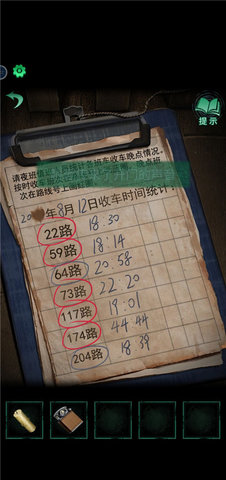 提示
请夜班值班人员统计各班车收车晚点情况。
次在路线号上画红圈
年8月12日收车时间统计:
22路 18:30
59路 18:14
64路 20:58
73路 22:20
117路 19:01
174路 44:44
204路 18:39